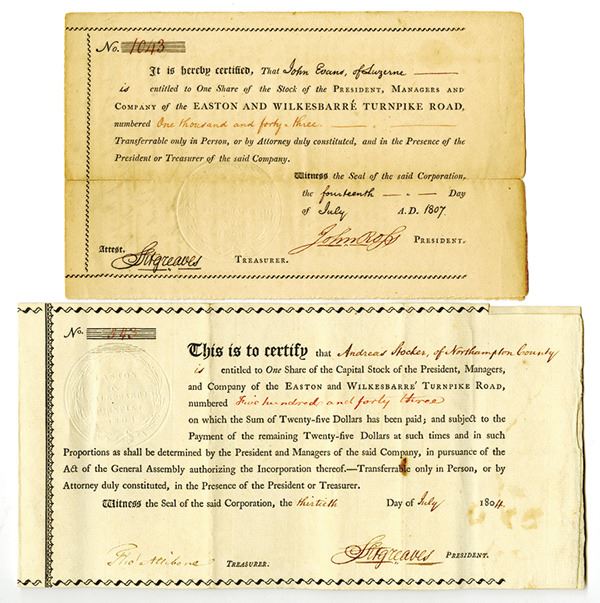 No. 1043
It is hereby certified, That John Evans, of Luzerne
is entitled to One Share of the Stock of the PRESIDENT, MANAGERS AND
COMPANY OF THE EASTON AND WILKESBARRÉ TURNPIKE ROAD,
numbered One thousand and forty-three.
Transferrable only in Person, or by Attorney duly constituted, and in the Presence of the
President or Treasurer of the said Company.
Witness the Seal of the said Corporation,
the fourteenth Day
of July A.D. 1807.
John Ross PRESIDENT.
Attest.
Sitgreaves TREASURER.
No. 543
This is to certify that Andreas Stocker, of Northampton County
is entitled to One Share of the Capital Stock of the President, Managers,
and Company of the EASTON AND WILKESBARRE TURNPIKE ROAD,
numbered Five hundred and forty three
on which the Sum of Twenty-five Dollars has been paid; and subject to the
Payment of the remaining Twenty-five Dollars at such times and in such
Proportions as shall be determined by the President and Managers of the said Company, in pursuance of the
Act of the General Assembly authorizing the Incorporation thereof.—Transferrable only in Person, or by
Attorney duly constituted, in the Presence of the President or Treasurer.
Witness the Seal of the said Corporation, the thirtieth Day of July 1804.
Tho. Allibone TREASURER. Sitgreaves PRESIDENT.